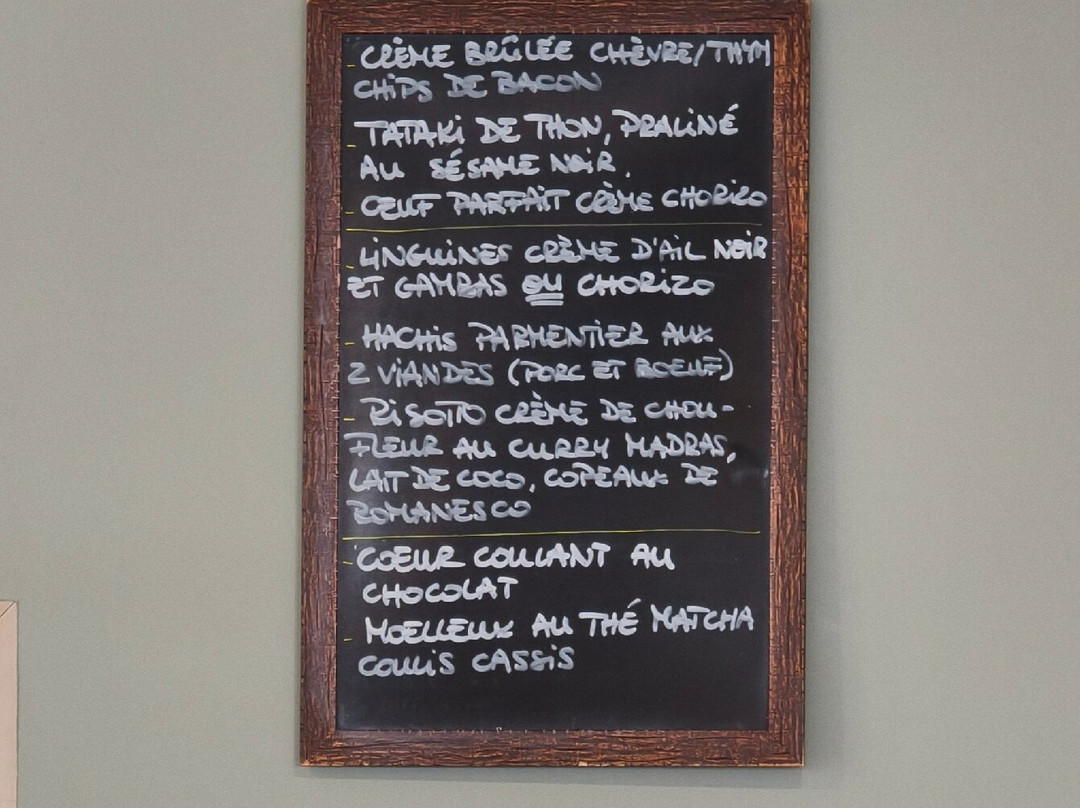 - CRÈME BRÛLÉE CHÈVRE/THYM
CHIPS DE BACON
- TATAKI DE THON, PRALINÉ
AU SÉSAME NOIR.
- ŒUF PARFAIT CRÈME CHORIZO
- LINGUINES CRÈME D'AIL NOIR
ET GAMBAS OU CHORIZO
- HACHIS PARMENTIER AUX
2 VIANDES (PORC ET BOEUF)
- RISOTTO CRÈME DE CHOU-
FLEUR AU CURRY MADRAS,
LAIT DE COCO, COPEAUX DE
ROMANESCO
- COEUR COULANT AU
CHOCOLAT
- MOELLEUX AU THÉ MATCHA
COULIS CASSIS